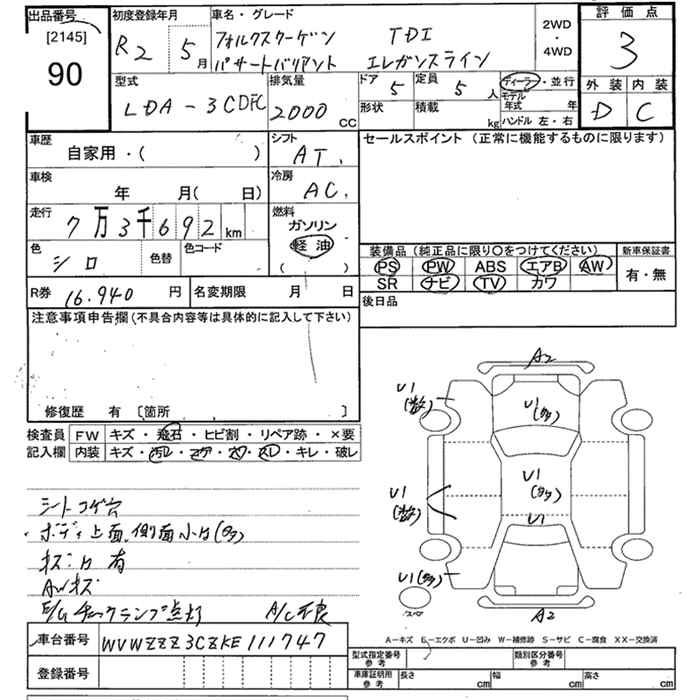 出品番号
[2145]
90
初度登録年月
R2 5月
車名・グレード
フォルクスワーゲン TDI
パサートバリアント エレガンスライン
2WD
・
4WD
評価点
3
外装 内装
D C
型式
LDA-3CDFC
排気量
2000 CC
ドア 5
定員 5 人
形状
積載 kg
ディーラー・並行
モデル年式 年
ハンドル 左・右
車歴
自家用・( )
シフト
AT.
車検
年 月( 日)
冷房
AC.
走行
7万3千692 km
燃料
ガソリン
軽油
( )
色
シロ
色替
色コード
R券 16.940 円
名変期限 月 日
セールスポイント(正常に機能するものに限ります)
装備品(純正品に限り〇をつけてください)
PS PW ABS エアB AW
SR ナビ TV カワ
新車保証書
有・無
後日品
注意事項申告欄(不具合内容等は具体的に記入して下さい)
修復歴 有 [箇所 ]
検査員
記入欄
FW キズ・飛石・ヒビ割・リペア跡・×要
内装 キズ・汚レ・コゲ・穴・スレ・キレ・破レ
シートコゲ穴
ボディ上面、側面小凹(多)
キズ凹有
AWキズ
E/G チェックランプ点灯 A/C不良
A2
U1
U1
(多)
U1
(多)
U1
U1
U1(多)
A2
スペア
A-キズ E-エクボ U-凹み W-補修跡 S-サビ C-腐食 XX-交換済
車台番号 WVWZZZ3CZKE111747
登録番号
型式指定番号
参考
類別区分番号
参考
車庫証明用
参考
長さ cm
幅 cm
高さ cm